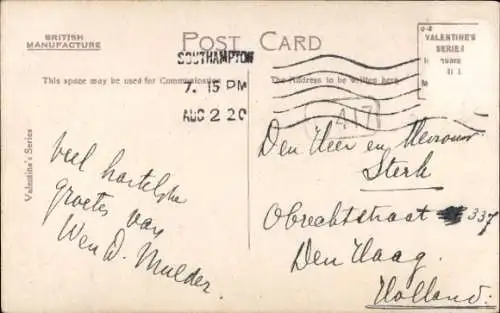 BRITISH
MANUFACTURE
POST CARD
SOUTHAMPTON
7. 15 PM
AUG 2 20
VALENTINE'S
SERIES
This space may be used for Communication
The Address to be written here
Valentine's Series
417
Veel hartelijke
groeten van
Wen D. Mulder.
Den Heer en Mevrouw
Sterk
Obrechtstraat 337
Den Haag.
Holland.